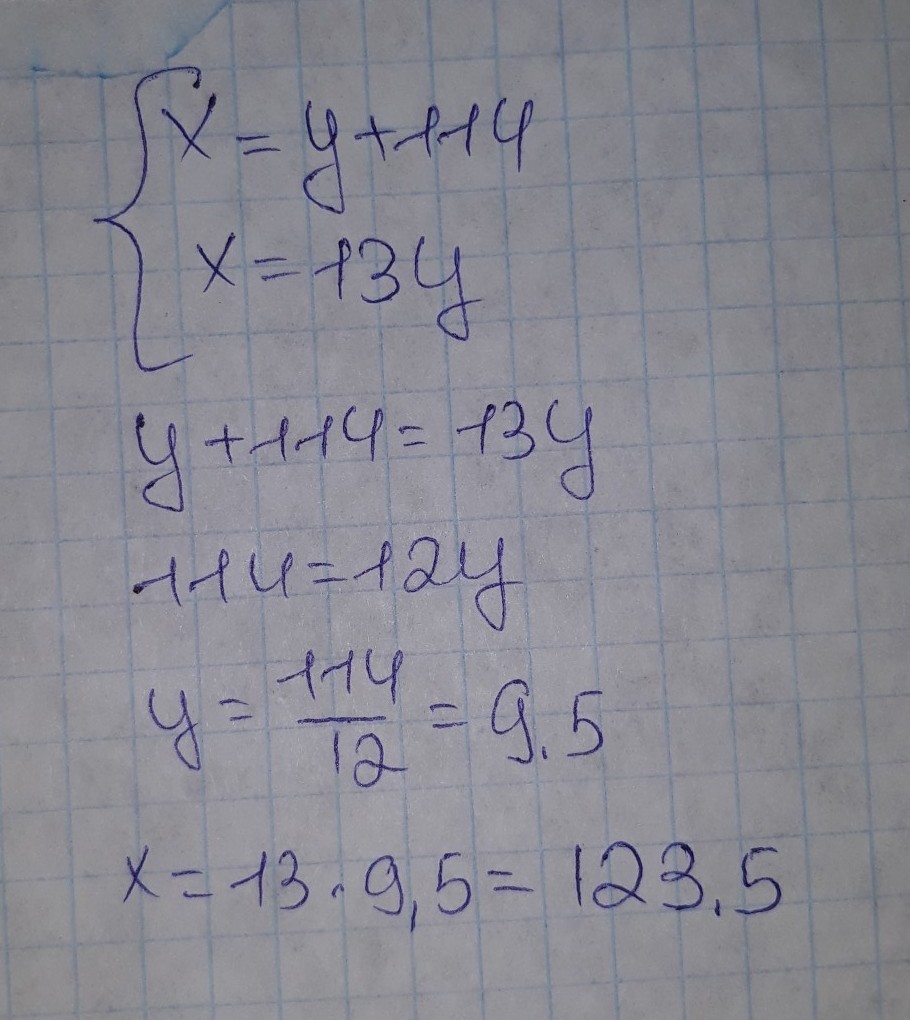 x = y + 114
x = 13y
y + 114 = 13y
114 = 12y
y = 114/12 = 9.5
x = 13 · 9,5 = 123.5